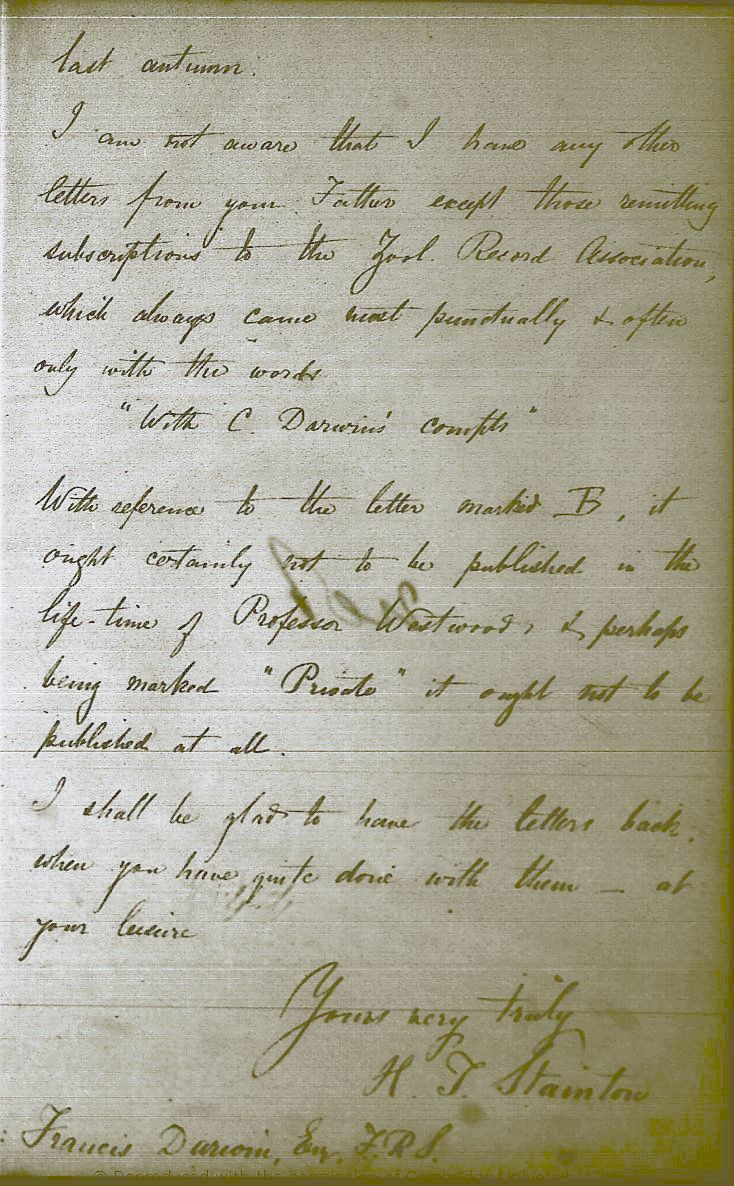 last autumn.
I am not aware that I have any other
letters from your Father except those remitting
subscriptions to the Zool. Record Association,
which always came most punctually & often
only with the words
"With C. Darwin's compts"
With reference to the letter marked B, it
ought certainly not to be published in the
life-time of Professor Westwood, & perhaps
being marked "Private" it ought not to be
published at all.
I shall be glad to have the letters back,
when you have quite done with them — at
your leisure
Yours very truly
H. T. Stainton
Francis Darwin, Esq. F.R.S.
© Reproduced with the permission of Cambridge University